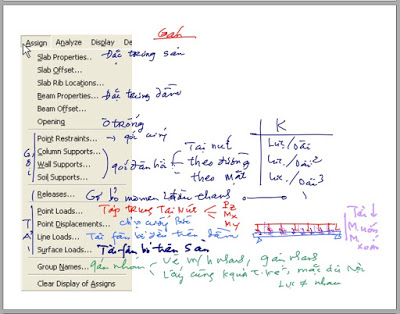 Gán
Assign Analyze Display De
Slab Properties... Đặc trưng sàn
Slab Offset...
Slab Rib Locations...
Beam Properties... Đặc trưng dầm
Beam Offset...
Opening Ô trống
K
Point Restraints... gối cứng
Column Supports... Tại nút Lực/Dài
Wall Supports... gối đàn hồi theo đường Lực/Dài²
Soil Supports... theo mặt Lực/Dài³
Releases... Gỡ bỏ momen 2 đầu thanh
Point Loads... Tập trung Tại Nút Pz Mx My
Point Displacements... chuyển vị
Line Loads... Tải phân bố trên dầm
Surface Loads... Tải phân bố trên Sàn
Tải
M uốn
M xoắn
Group Names... gán nhóm
Lấy cùng kquả
mặc dù nội
Lực ≠ nhau
Clear Display of Assigns